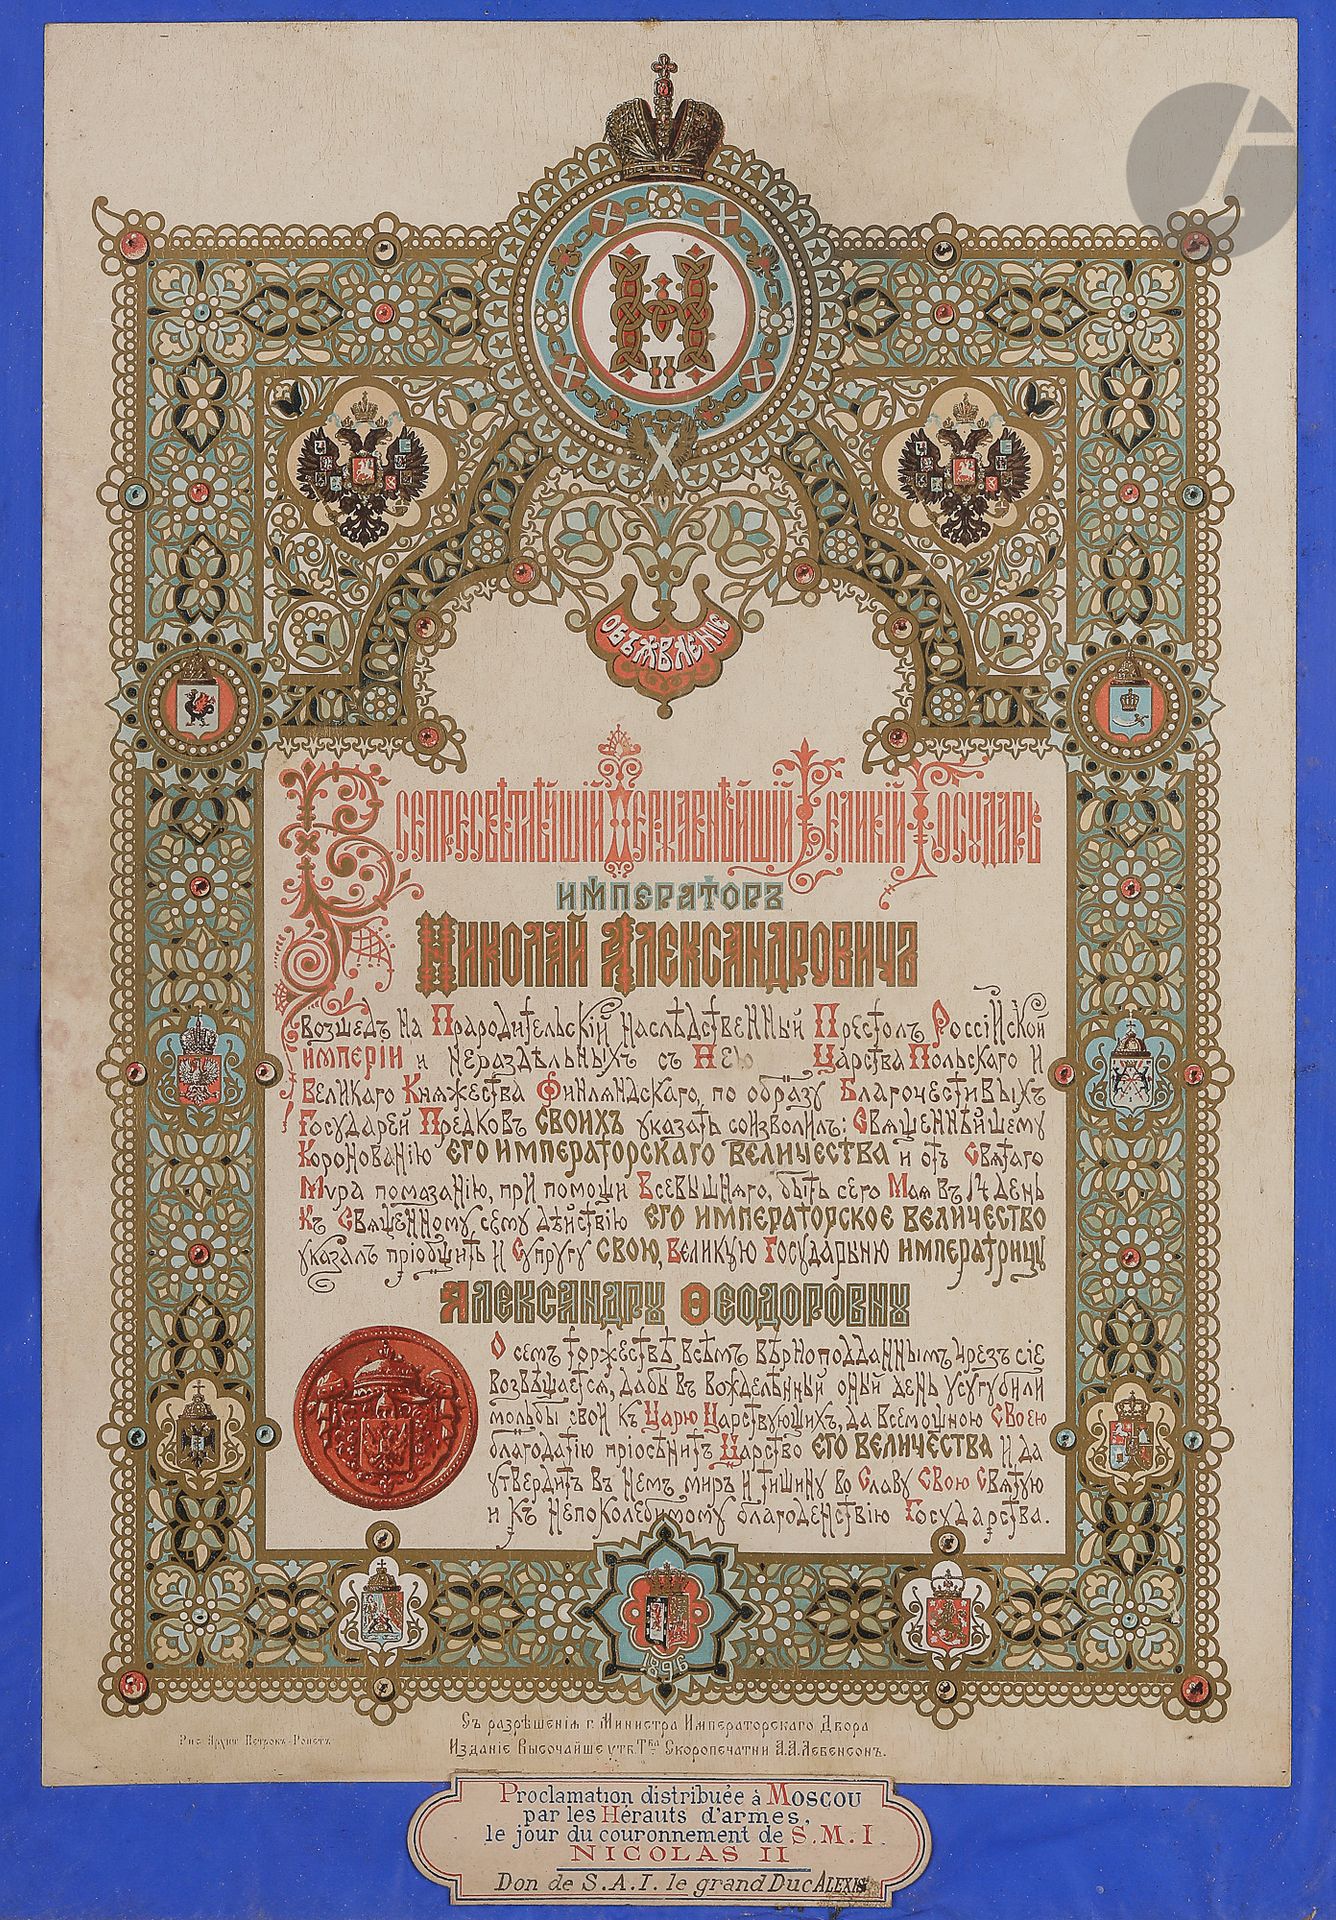 Н
II
ОБЪЯВЛЕНІЕ
Всепресвѣтлѣйшій Державнѣйшій Великій Государь
Императоръ
Николай Александровичъ
возшедъ на Прародительскій наслѣдственный Престолъ Россійской
Имперіи и нераздѣльныхъ съ Нею Царства Польскаго и
Великаго Княжества Финляндскаго, по образу Благочестивыхъ
Государей Предковъ СВОИХЪ указать соизволилъ: Священнѣйшему
Коронованію ЕГО ИМПЕРАТОРСКАГО ВЕЛИЧЕСТВА и отъ Святаго
Мѵра помазанію, при помощи Всевышняго, быть сего Мая въ 14 день
Къ Священному сему дѣйствію ЕГО ИМПЕРАТОРСКОЕ ВЕЛИЧЕСТВО
указалъ пріобщить и Супругу СВОЮ, Великую Государыню ИМПЕРАТРИЦУ
Александру Ѳеодоровну
О семъ торжествѣ всѣмъ вѣрноподданнымъ чрезъ сіе
возвѣщается, дабы въ вождѣленный оный день усугубили
мольбы свои къ Царю Царствующихъ, да всемощною Своею
благодатію пріосѣнитъ Царство ЕГО ВЕЛИЧЕСТВА и да
утвердитъ въ немъ миръ и тишину во Славу Свою Святую
и къ непоколебимому благоденствію Государства.
1896
Съ разрѣшенія г. Министра Императорскаго Двора
Рис. Архит. Петровъ-Ропетъ
Изданіе Высочайше утв. Тва Скоропечатни А.А.Левенсонъ.
Proclamation distribuée à Moscou
par les Hérauts d'armes,
le jour du couronnement de S.M.I.
NICOLAS II
Don de S.A.I. le grand Duc ALEXIS